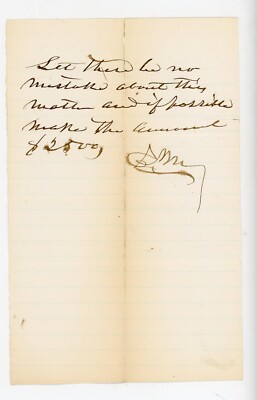 Let there be no
mistake about this
matter and if possible
make the amount
$2500